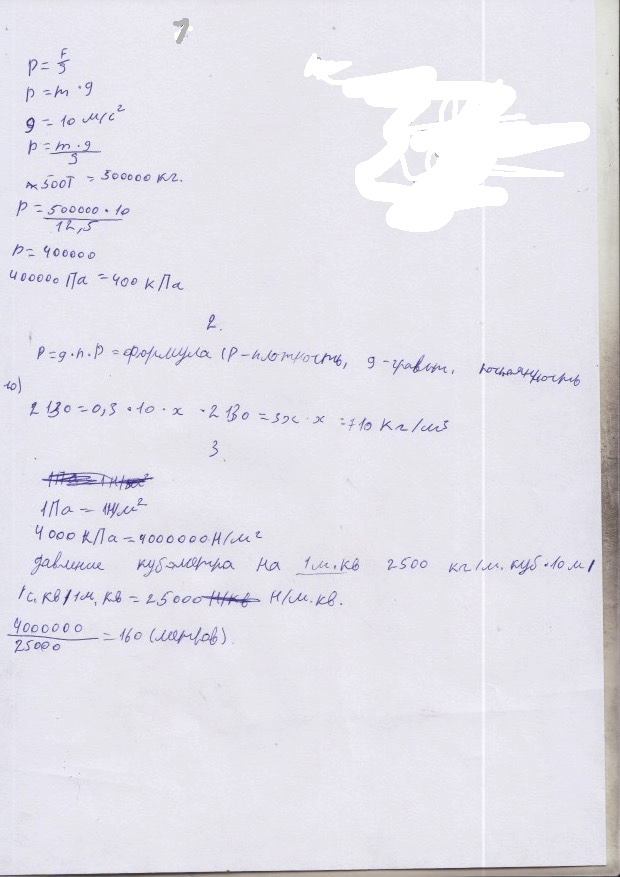 1
P = F/S
P = m · g
g = 10 м/с²
P = m · g / S
m 500т = 500000 кг.
P = 500000 · 10 / 12,5
P = 400000
400000 Па = 400 кПа
2.
P = g · h · P = формула (P - плотность, g - гравит. постоянность
10)
2130 = 0,3 · 10 · x · 2130 = 3x · x = 710 кг/м3
3.
1Па = 1Н/м²
4000 кПа = 4000000 Н/м²
давление куб.метра на 1 м.кв 2500 кг/м.куб · 10 м/
/с.кв/1м.кв = 25000 Н/м.кв.
4000000 / 25000 = 160 (метров).